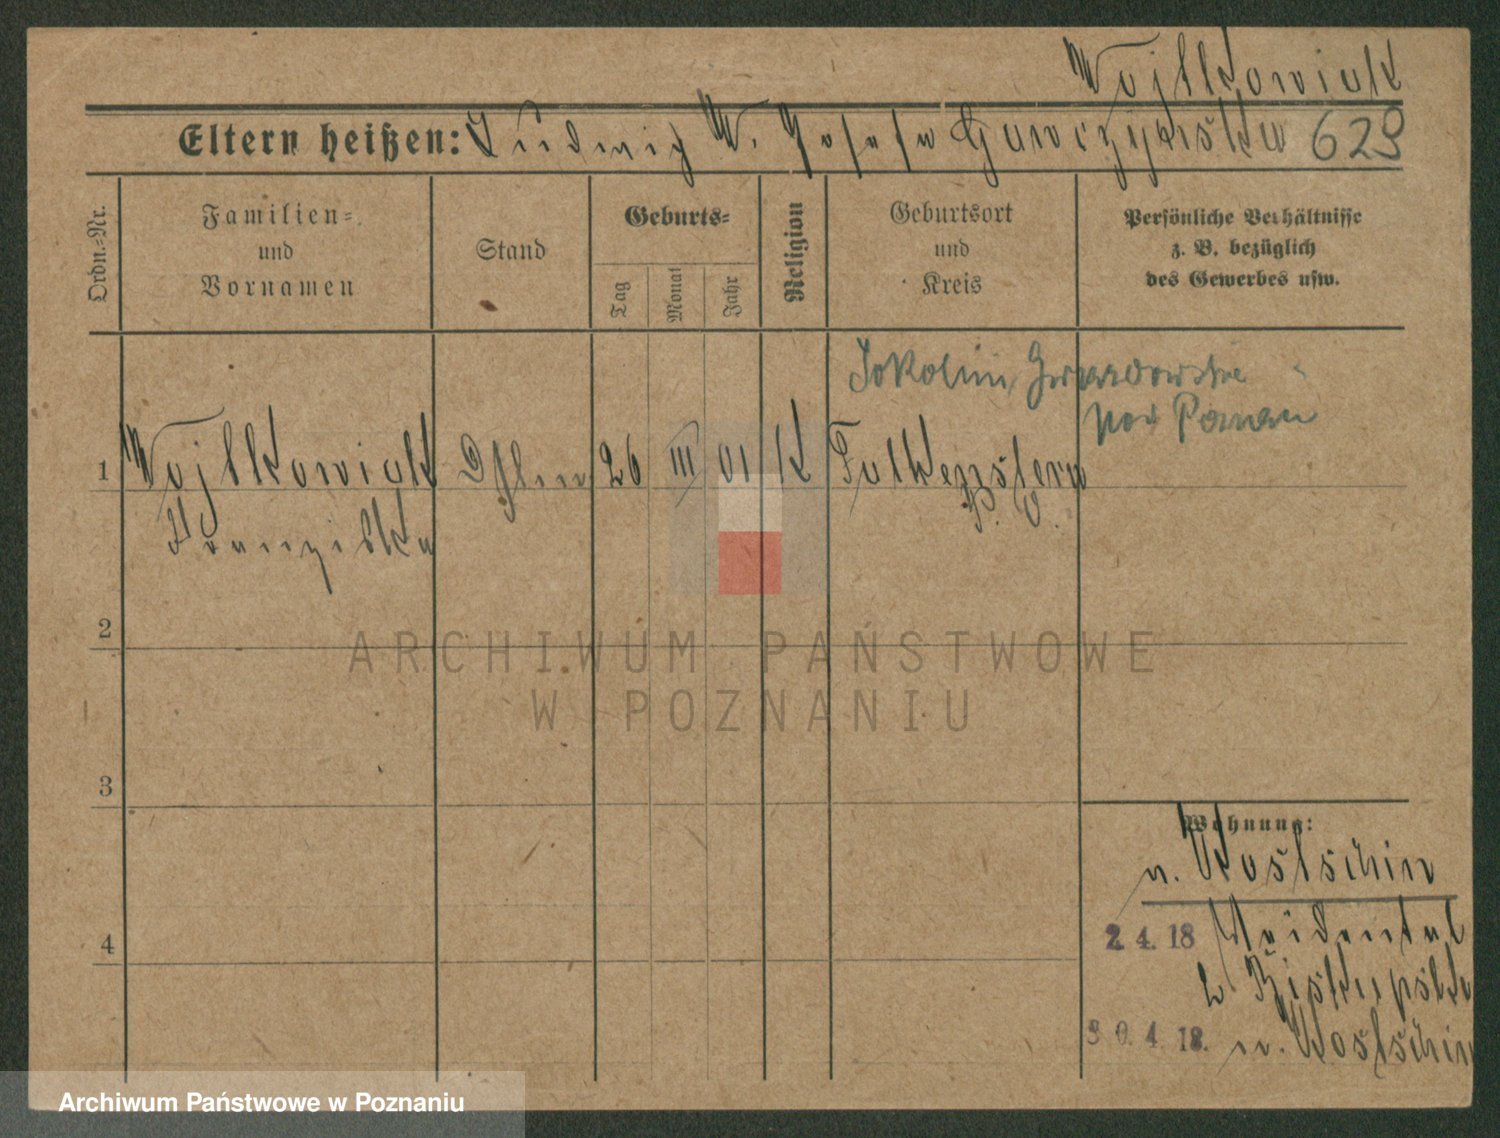 Wojtkowiak
Eltern heißen: Ludwig W. Josefa Gawczyńska 629
Ordn.=Nr.
Familien=
und
Vornamen
Stand
Geburts=
Tag
Monat
Jahr
Religion
Geburtsort
und
Kreis
Persönliche Verhältnisse
z. B. bezüglich
des Gewerbes usw.
1 Wojtkowiak 26 III 01 K Falkenstern
Franziska P. O.
2
3
4
Wohnung:
n. Kostschin
2. 4. 18 Weidental
b Biskupski
30. 4. 18. n. Kostschin
ARCHIWUM PAŃSTWOWE
W POZNANIU
Archiwum Państwowe w Poznaniu